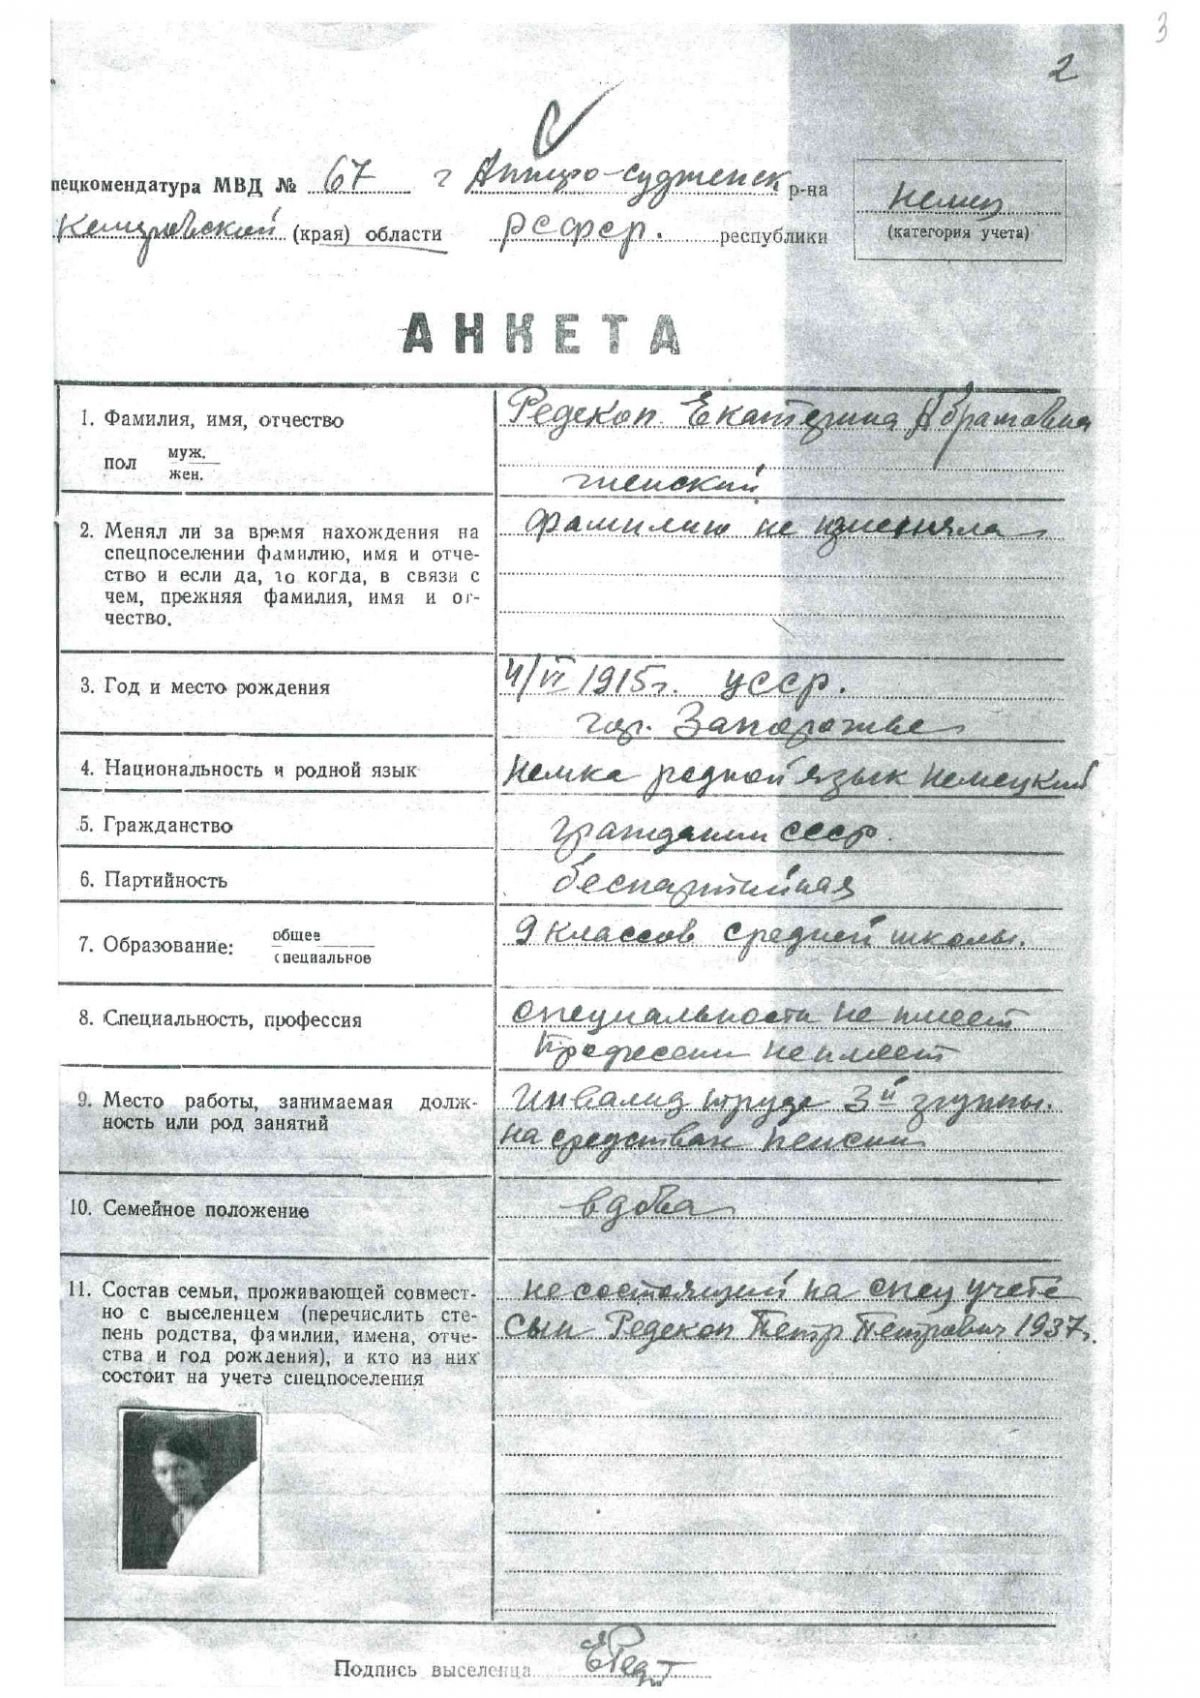 3
2
пецкомендатура МВД № 67 г Анжеро-судженск р-на
Кемеровский (края) области РСФСР. республики
немец
(категория учета)
АНКЕТА
1. Фамилия, имя, отчество
пол муж.
жен.
Редекоп Екатерина Абрамовна
женский
2. Менял ли за время нахождения на
спецпоселении фамилию, имя и отче-
ство и если да, то когда, в связи с
чем, прежняя фамилия, имя и от-
чество.
фамилию не изменяла
3. Год и место рождения
4/VI 1915г. УССР.
гор. Запорожье
4. Национальность и родной язык
Немка родной язык немецкий
5. Гражданство
гражданин СССР.
6. Партийность
беспартийная
7. Образование: общее
специальное
9 классов средней школы.
8. Специальность, профессия
специальности не имеет
Професси не имеет
9. Место работы, занимаемая долж-
ность или род занятий
Инвалид труда 3й группы.
на средствах пенсии
10. Семейное положение
вдова
11. Состав семьи, проживающей совмест-
но с выселенцем (перечислить сте-
пень родства, фамилии, имена, отче-
ства и год рождения), и кто из них
состоит на учете спецпоселения
не состоящий на спец учете
Сын Редекоп Петр Петрович 1937г.
Подпись выселенца